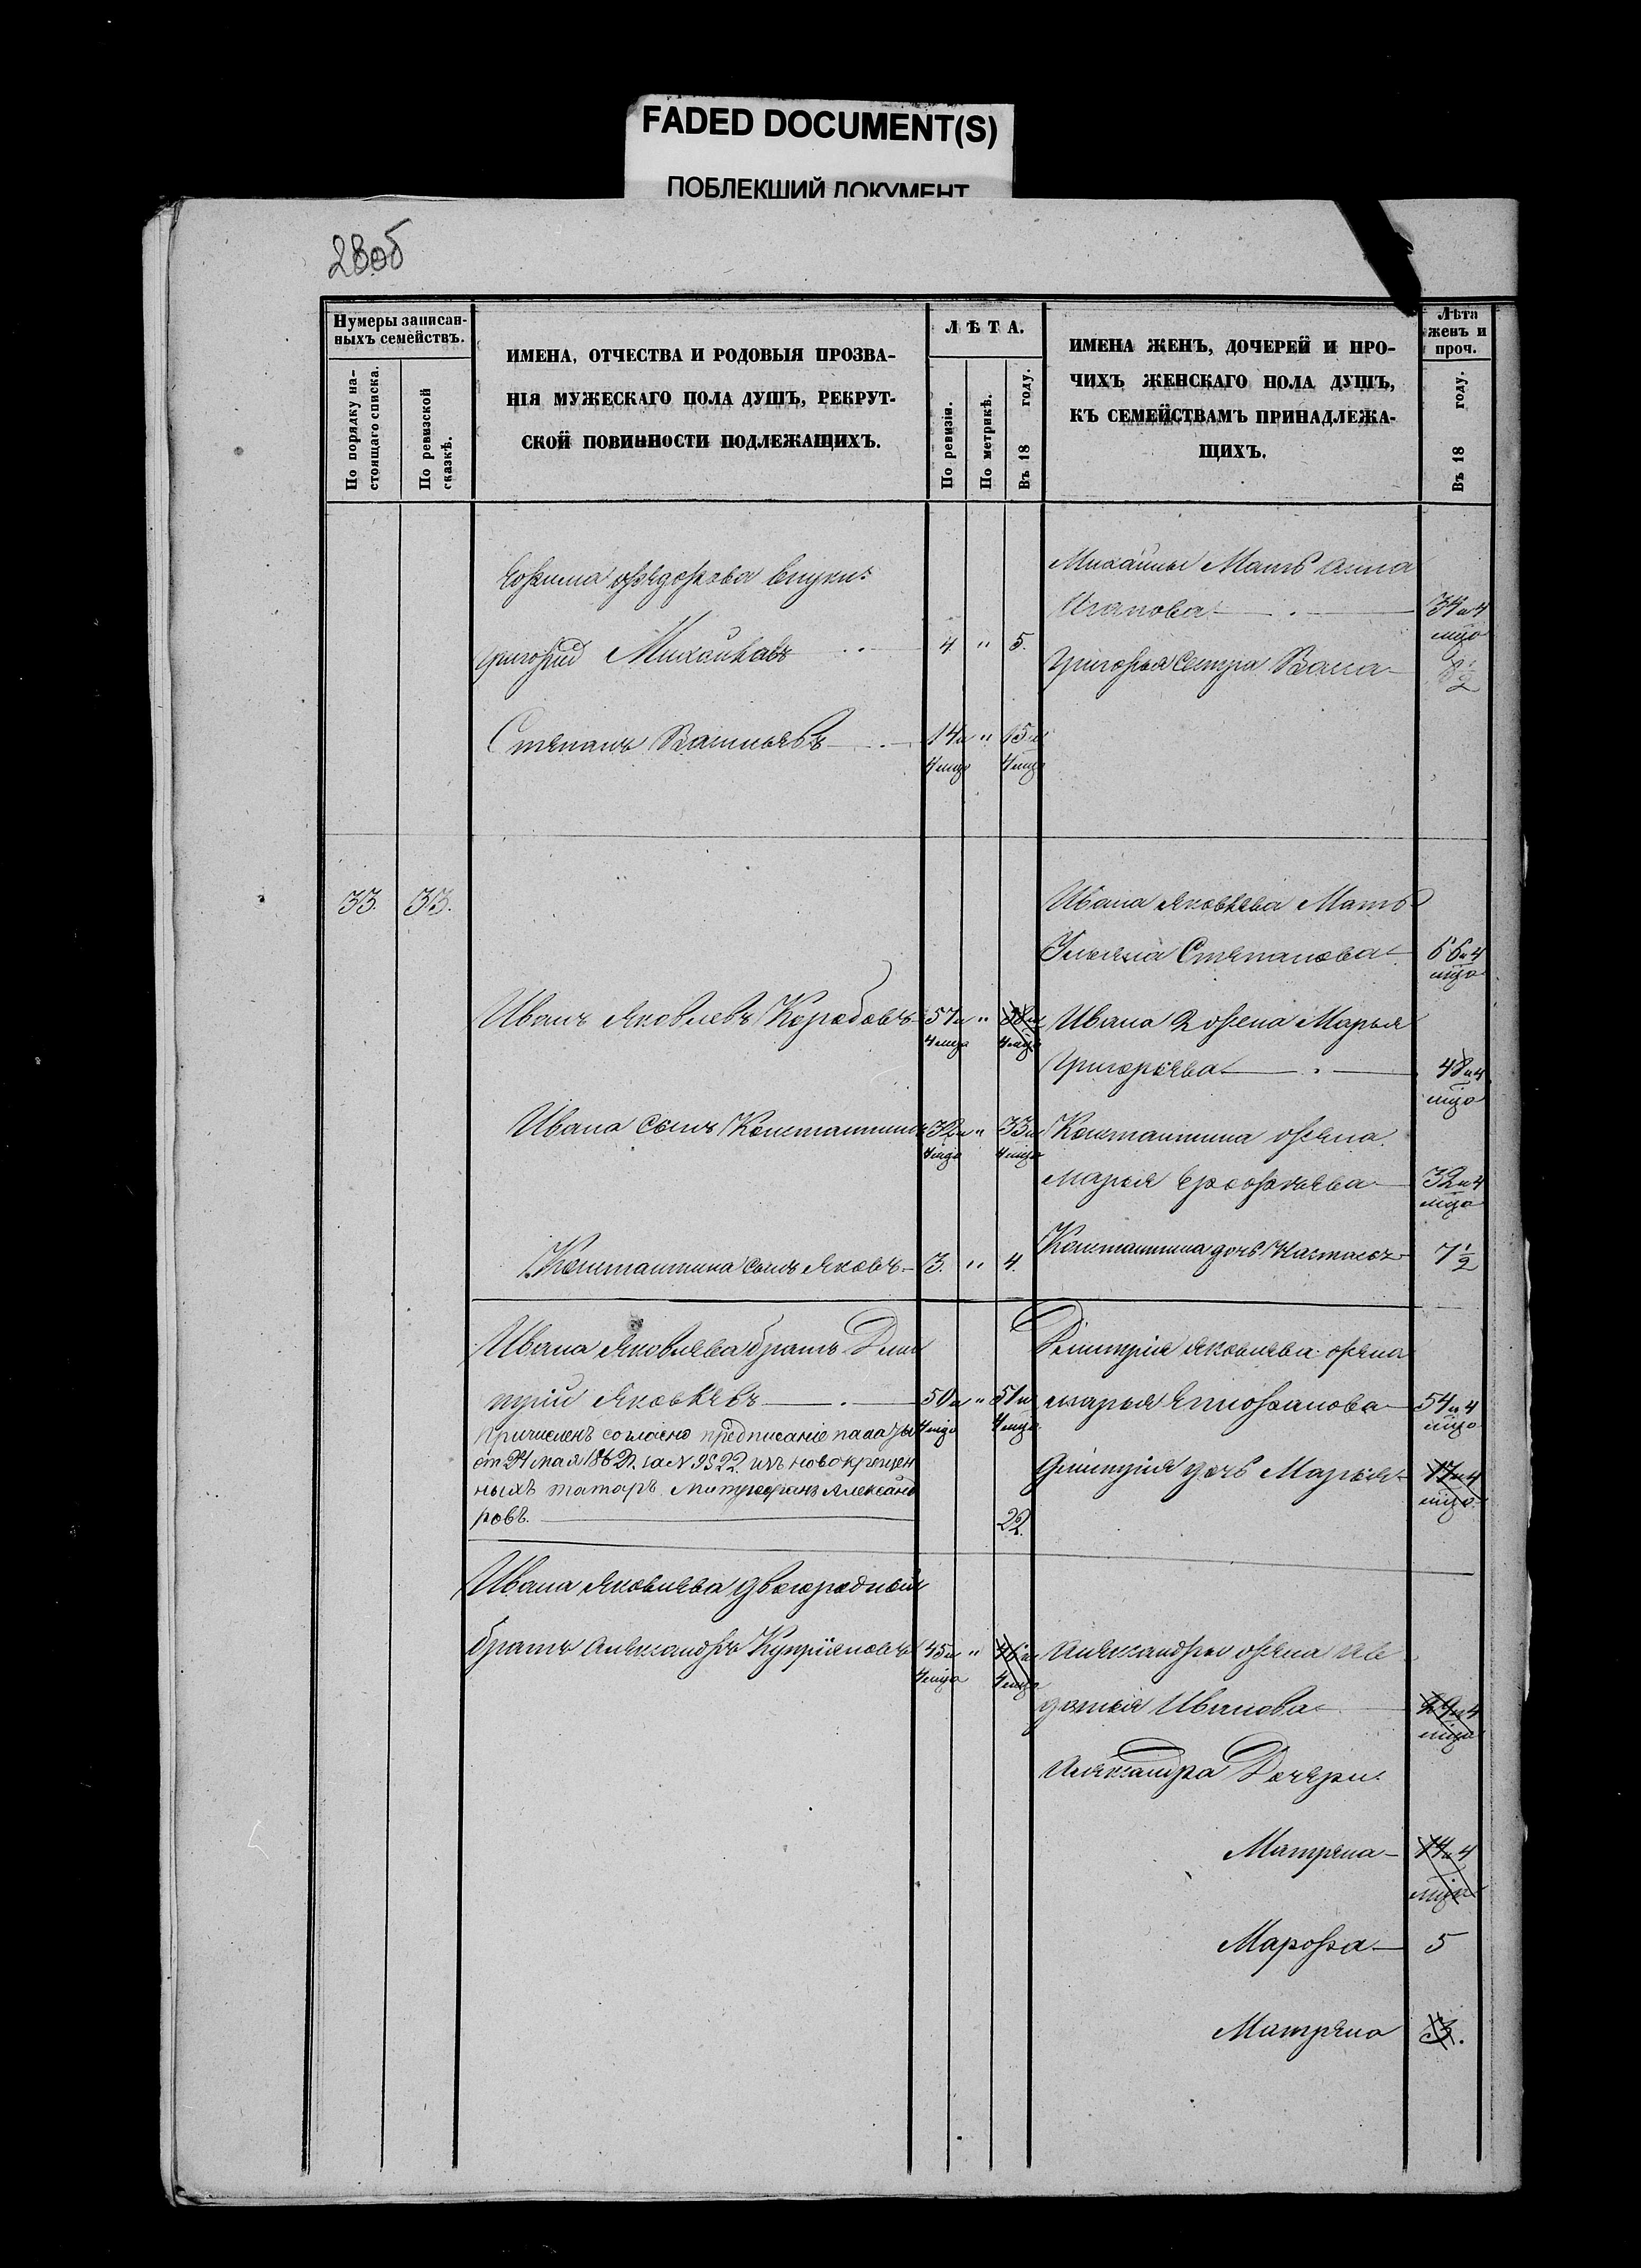 FADED DOCUMENT(S)
ПОБЛЕКШИЙ ДОКУМЕНТ
28об
Нумеры записан-
ныхъ семействъ.
По порядку на-
стоящаго списка.
По ревизской
сказкѣ.
ИМЕНА, ОТЧЕСТВА И РОДОВЫЯ ПРОЗВА-
НІЯ МУЖЕСКАГО ПОЛА ДУШЪ, РЕКРУТ-
СКОЙ ПОВИННОСТИ ПОДЛЕЖАЩИХЪ.
ЛѢТА.
По ревизіи.
По метрикѣ.
Въ 18 году.
ИМЕНА ЖЕНЪ, ДОЧЕРЕЙ И ПРО-
ЧИХЪ ЖЕНСКАГО ПОЛА ДУШЪ,
КЪ СЕМЕЙСТВАМЪ ПРИНАДЛЕЖА-
ЩИХЪ.
Лѣта
женъ и
проч.
Въ 18 году.
Михайлы Мать Анна
Ефима Федорова внуки:
34 и 4
мца
Григорій Михайловъ 4 " 5.
Григорья сестра
Степанъ Васильевъ 14 и " 15 и
4 мца 4 мца
33. 33. Ивана Яковлева Мать
Степанова 66 и 4
мца
Иванъ Яковлевъ Коробовъ 57 и " 58 и Ивана 2 жена Марья
4 мца 4 мца
Григорьева 48 и 4
мца
Ивана сынъ Константинъ 32 и " 33 и Константина жена
4 мца 4 мца
Марья Ерофеева 32 и 4
мца
Константина сынъ Яковъ 3. " 4. Константина дочь 7 1/2
Ивана Яковлева братъ Дми Дмитрія Яковлева жена
трій Яковлевъ 50 и " 51 и Марья 54 и 4
4 мца 4 мца мца
Причисленъ согласно предписанію палаты
от 24 мая 1862 г. за № 9522 изъ новокрещен Дмитрія дочь Марья 17 и 4
мца
ныхъ татаръ Митрофанъ Александ
ровъ. 22.
Ивана Яковлева двоюродный
братъ Александръ Купріяновъ 45 и " 46 и Александры жена Ав
4 мца 4 мца
дотья Иванова 29 и 4
мца
Александра Дочери:
Матрена 14 и 4
мца
Марфа 5
Матрена 3.